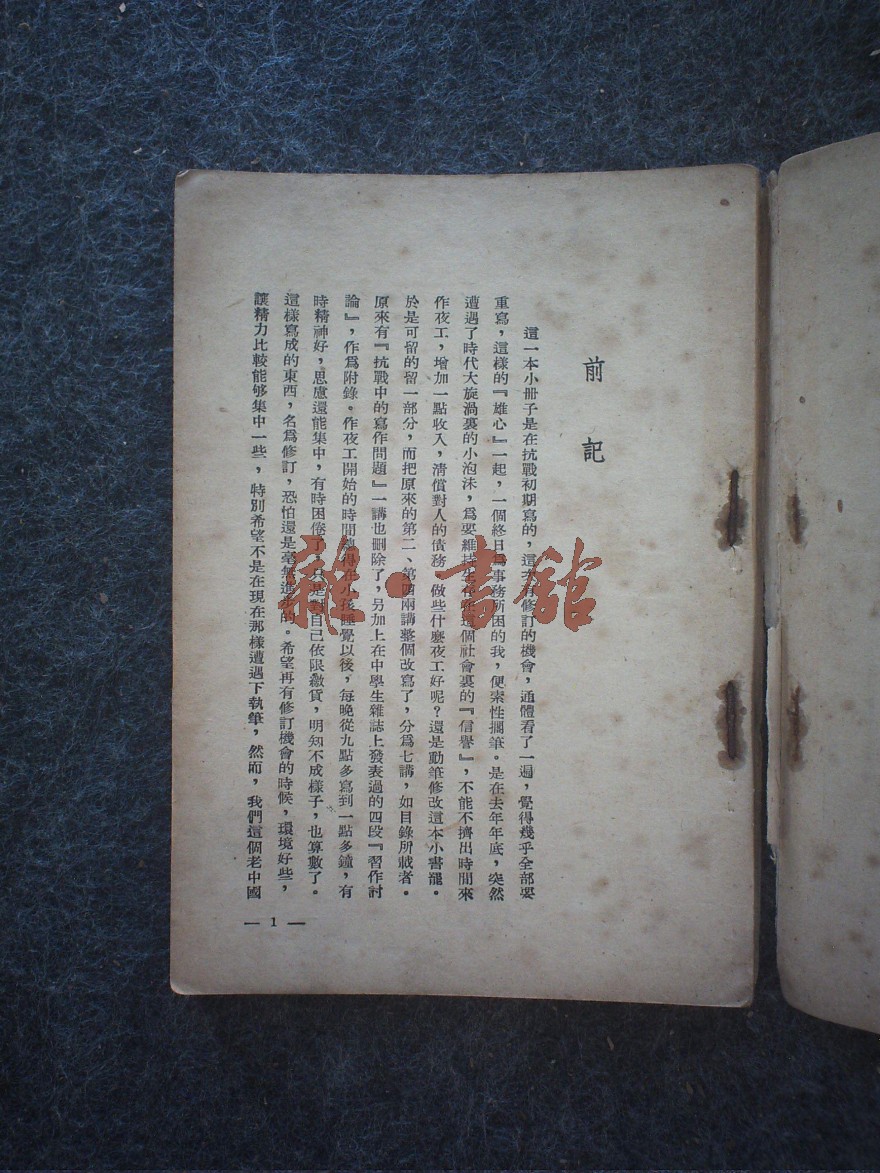 前記
這一本小冊子是在抗戰初期寫的，這次有修訂的機會，通體看了一遍，覺得幾乎全部要
重寫，這樣的『雄心』一起，一個終日爲事務所困的我，便索性擱筆。是在去年年底，突然
遭遇了時代大旋渦裏的小泡沫，爲要維持生在這個社會裏的『信譽』，不能不擠出時間來
作夜工，增加一點收入，清償對人的債務。做些什麼夜工好呢？還是動筆修改這本小書罷。
於是可留的留一部分，而把原來的第二、第四兩講整個改寫了，分爲七講，如目錄所載者。
原來有『抗戰中的寫作問題』一講也刪除了，另加上在中學生雜誌上發表過的四段『習作討
論』，作爲附錄。作夜工開始的時間總得在小孩睡覺以後，每晚從九點多寫到一點多鐘，有
時精神好，思慮還能集中，有時困倦了，只是對自己依限繳貨，明知不成樣子，也算數了。
這樣寫成的東西，名爲修訂，恐怕還是毫無進步的。希望再有修訂機會的時候，環境好些，
讓精力比較能够集中一些，特別希望不是在現在那樣遭遇下執筆，然而，我們這個老中國
— 1 —
雜·書館